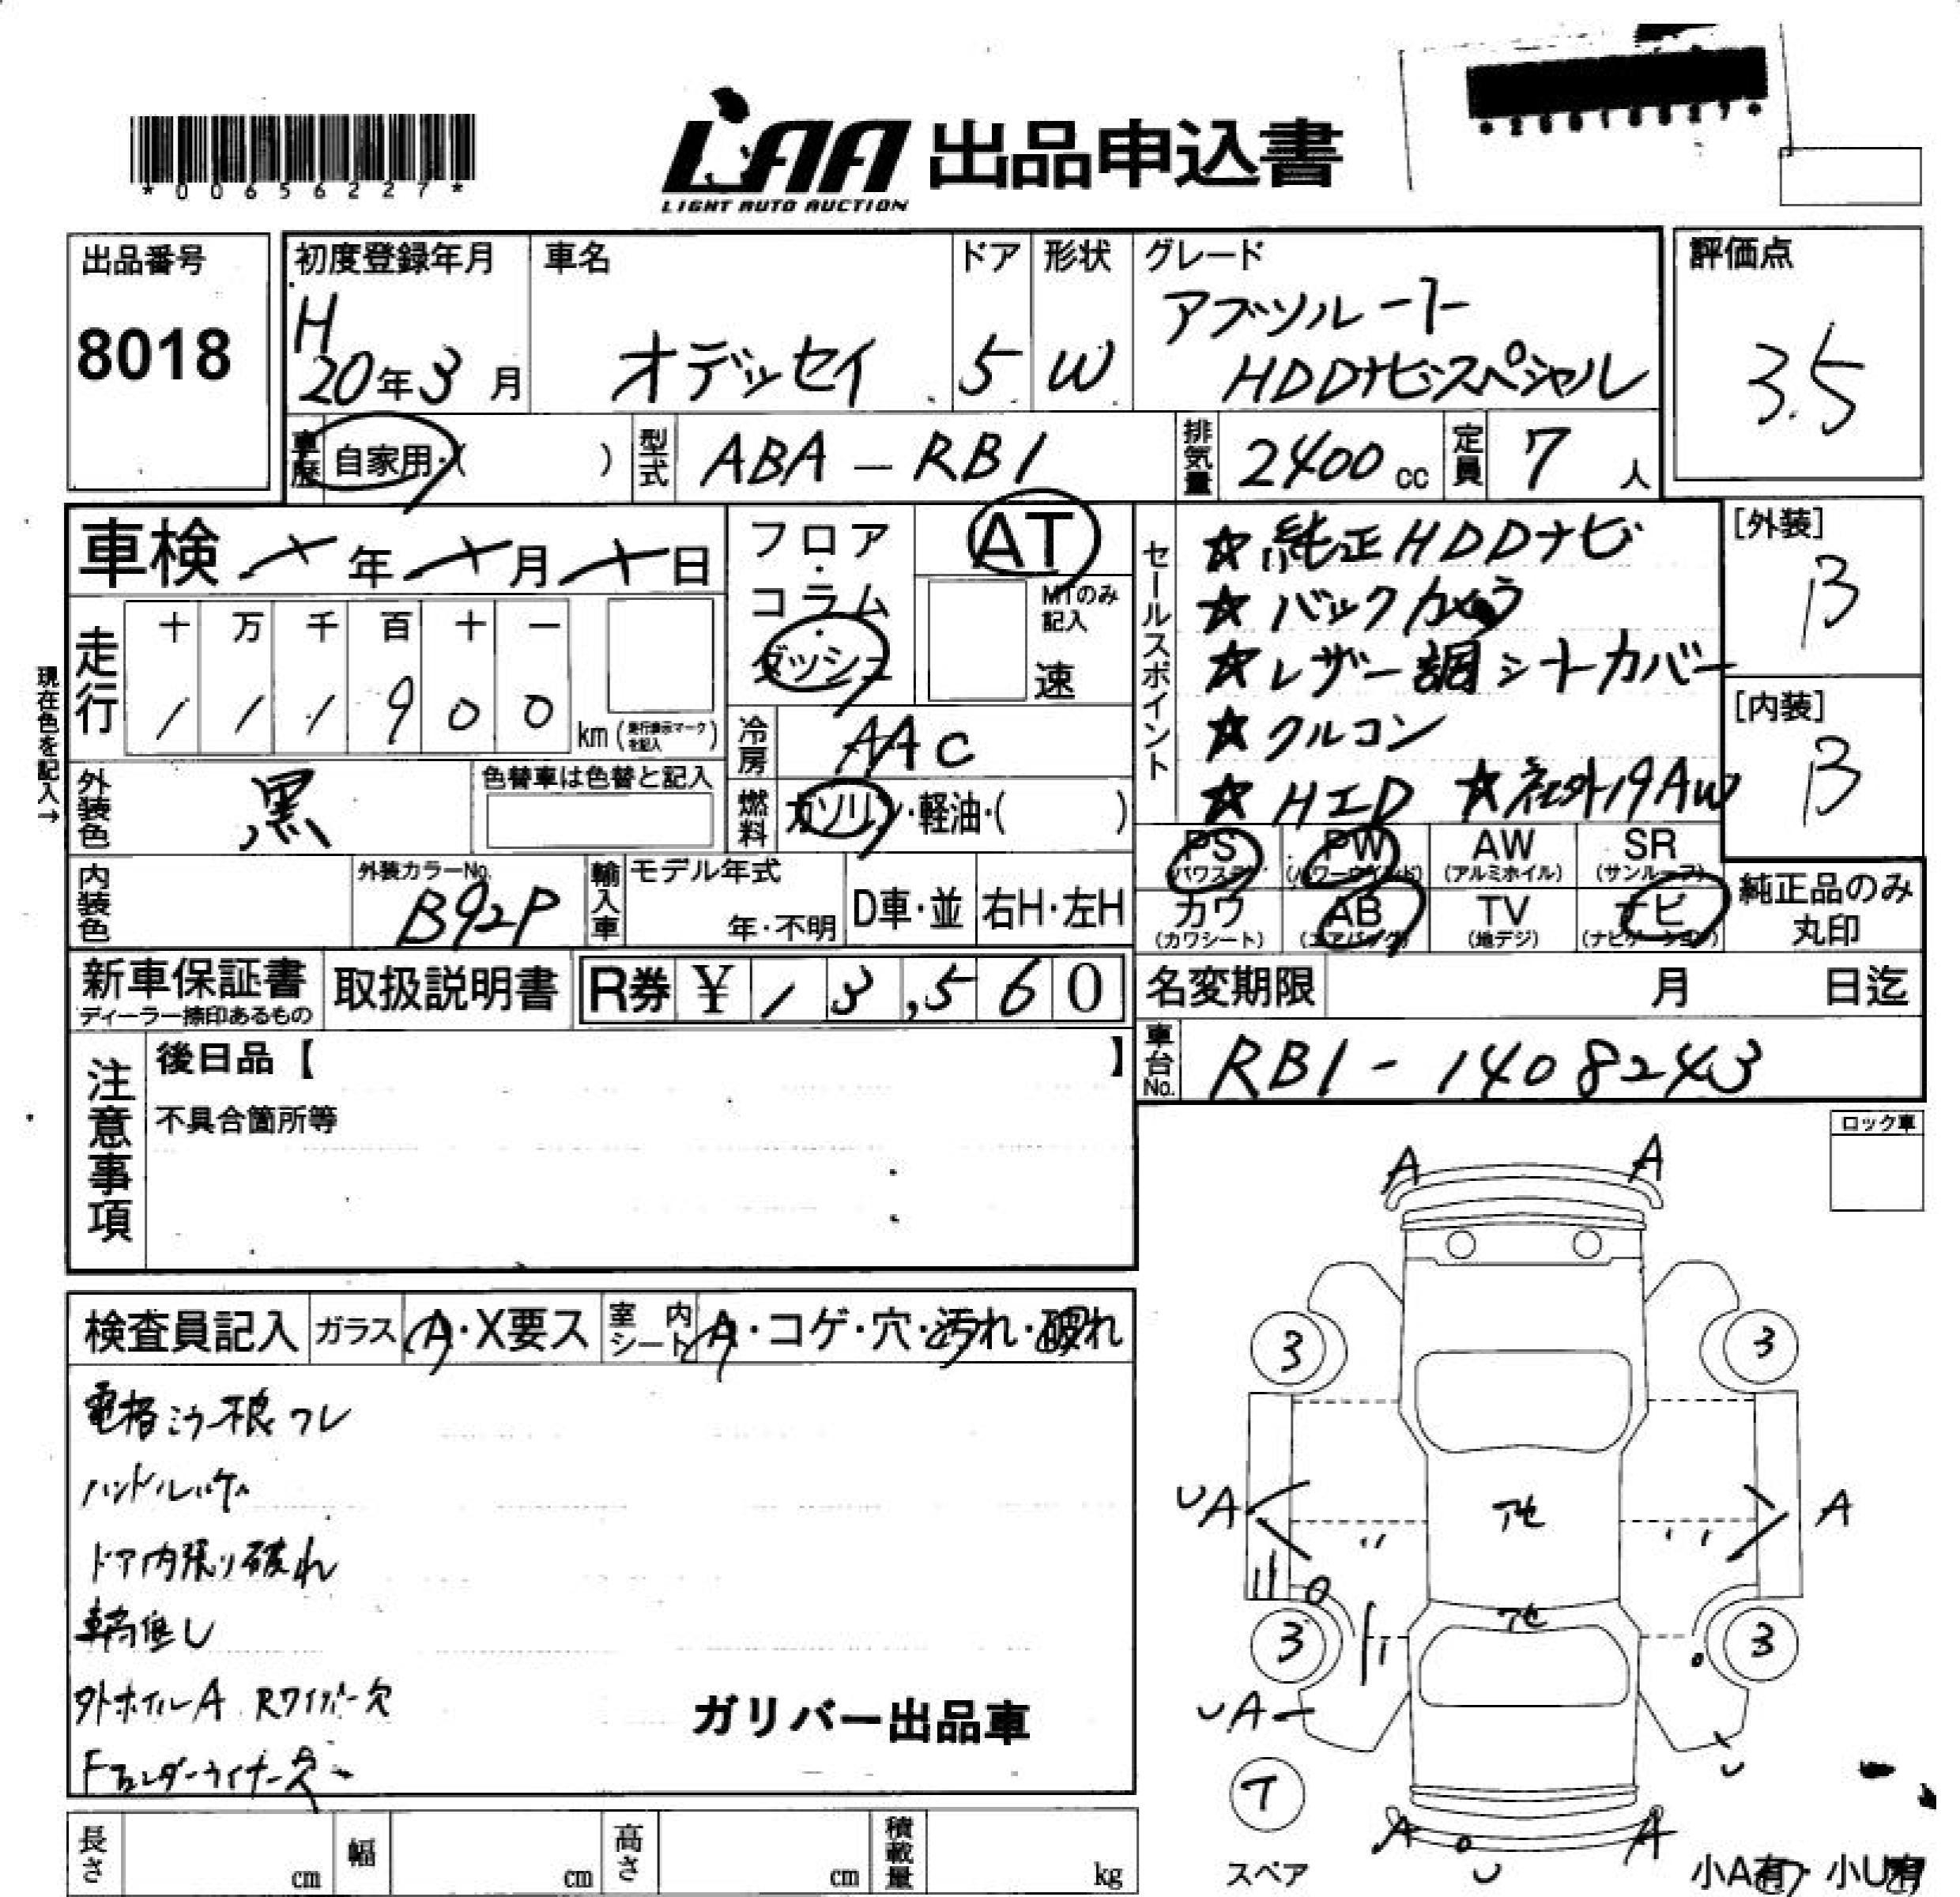 *00656227*
LAA 出品申込書
LIGHT AUTO AUCTION
出品番号
8018
初度登録年月
H
20年3月
車名
オデッセイ
ドア
5
形状
W
グレード
アブソルート
HDDナビスペシャル
評価点
3.5
車歴 自家用・( )
型式 ABA-RB1
排気量 2400cc
定員 7人
車検 年 月 日
フロア・コラム・ダッシュ
AT
MTのみ記入
速
走行
十 万 千 百 十 一
1 1 1 9 0 0 km
現在色を記入→
冷房 AAC
燃料 ガソリン・軽油・( )
外装色 黒
色替車は色替と記入
内装色
外装カラーNo.
B92P
輸入車
モデル年式
年・不明
D車・並
右H・左H
セールスポイント
☆純正HDDナビ
☆バックカメラ
☆レザー調シートカバー
☆クルコン
☆HID ☆社外19AW
[外装]
B
[内装]
B
PS
(パワステ)
PW
(パワーウインド)
AW
(アルミホイル)
SR
(サンルーフ)
カワ
(カワシート)
AB
(エアバッグ)
TV
(地デジ)
ナビ
(ナビゲーション)
純正品のみ
丸印
新車保証書
ディーラー捺印あるもの
取扱説明書
R券 ¥13,560
名変期限 月 日迄
車台No. RB1-1408243
注意事項
後日品【 】
不具合箇所等
ロック車
検査員記入
ガラス A・X要ス
室内シート A・コゲ・穴・汚れ・破れ
ドア内張り破れ
外ホイルA Rワイパー欠
Fフェンダーライナー欠
ガリバー出品車
A A
3 3
UA A
3 3
UA
T
スペア
A A
小A有・小U有
長さ cm
幅 cm
高さ cm
積載量 kg